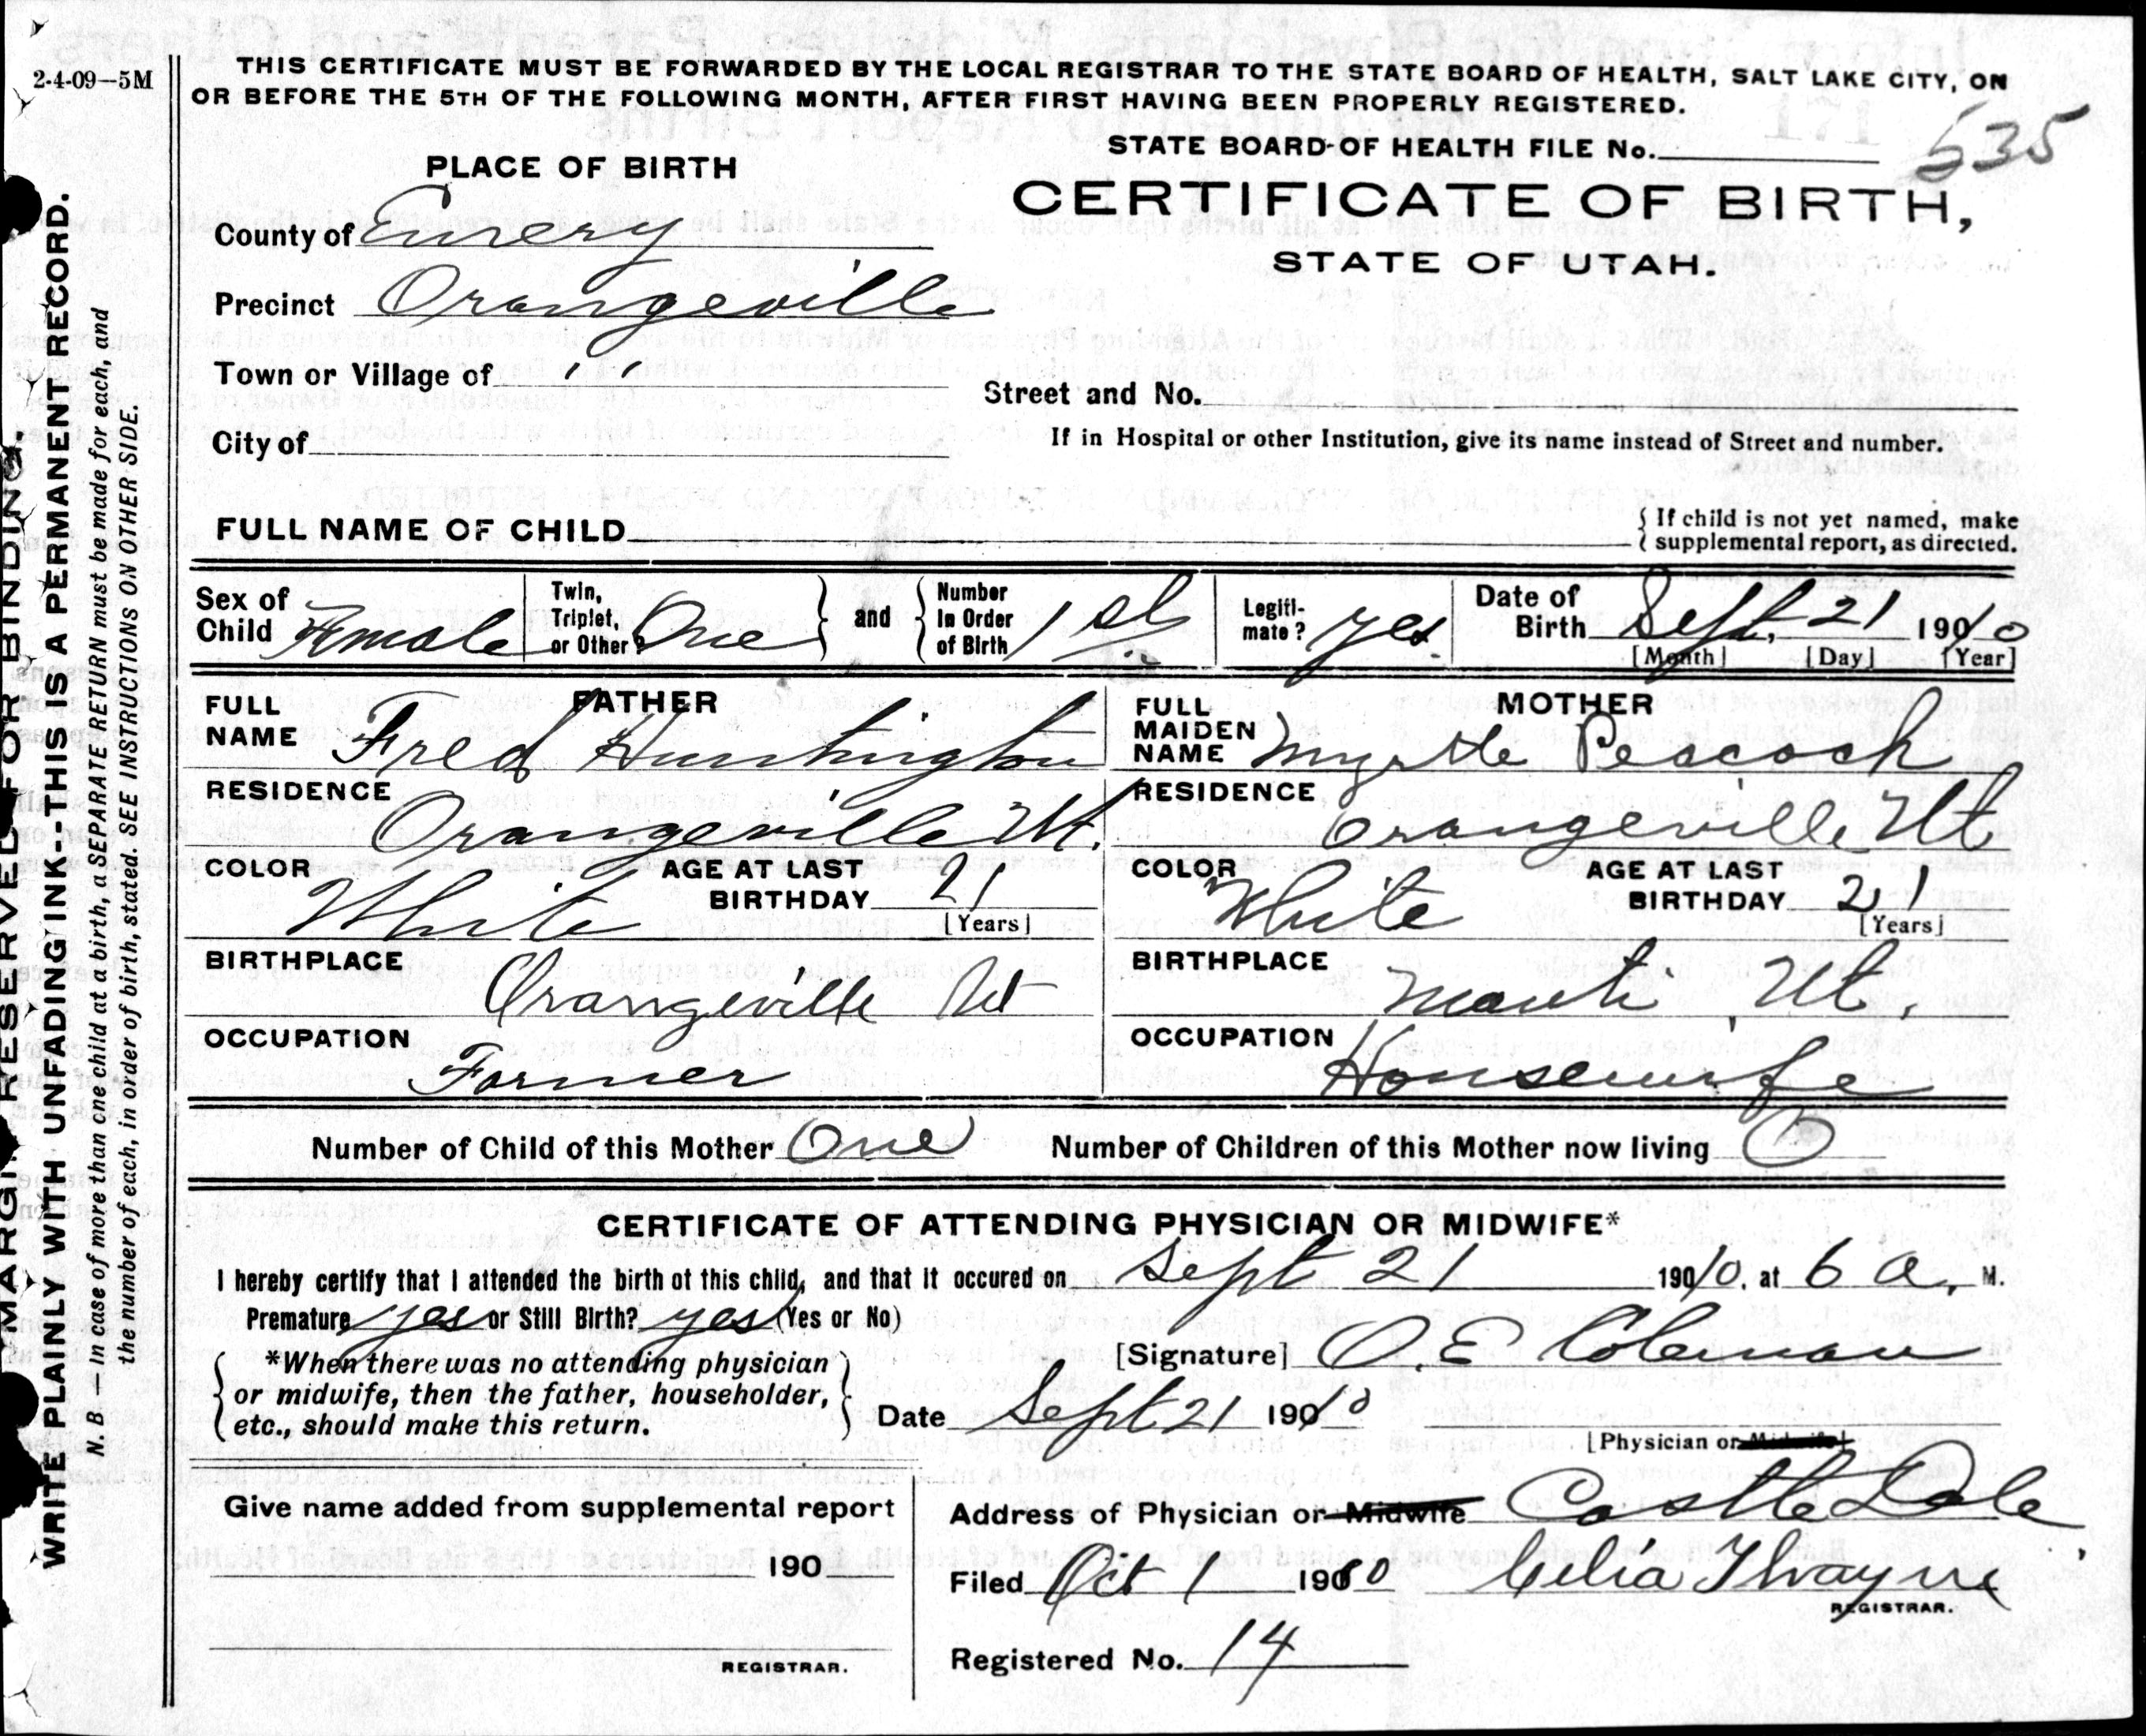 2-4-09—5M
THIS CERTIFICATE MUST BE FORWARDED BY THE LOCAL REGISTRAR TO THE STATE BOARD OF HEALTH, SALT LAKE CITY, ON
OR BEFORE THE 5TH OF THE FOLLOWING MONTH, AFTER FIRST HAVING BEEN PROPERLY REGISTERED.
STATE BOARD OF HEALTH FILE No. 535
PLACE OF BIRTH
CERTIFICATE OF BIRTH,
STATE OF UTAH.
County of Emery
Precinct Orangeville
Town or Village of " "
Street and No.
City of
If in Hospital or other Institution, give its name instead of Street and number.
FULL NAME OF CHILD
{ If child is not yet named, make
supplemental report, as directed.
Sex of Child Female Twin, Triplet, or Other? One } and { Number In Order of Birth 1st Legiti-mate? yes. Date of Birth Sept. 21 1910
[Month] [Day] [Year]
FATHER
FULL NAME Fred Hunthington
RESIDENCE
Orangeville Ut.
COLOR White AGE AT LAST BIRTHDAY 21
[Years]
BIRTHPLACE
Orangeville Ut
OCCUPATION
Farmer
MOTHER
FULL MAIDEN NAME Myrtle Peacock
RESIDENCE
Orangeville Ut
COLOR White AGE AT LAST BIRTHDAY 21
[Years]
BIRTHPLACE
Manti Ut.
OCCUPATION
Housewife
Number of Child of this Mother One Number of Children of this Mother now living 0
CERTIFICATE OF ATTENDING PHYSICIAN OR MIDWIFE*
I hereby certify that I attended the birth of this child, and that it occured on Sept 21 1910, at 6 a. M.
Premature yes or Still Birth? yes (Yes or No)
*When there was no attending physician
or midwife, then the father, householder,
etc., should make this return.
[Signature] O. E. Coleman
Date Sept 21 1910
[Physician or Midwife]
Give name added from supplemental report
190
REGISTRAR.
Address of Physician or Midwife Castle Dale
Filed Oct 1 1910 Celia Thwayne
REGISTRAR.
Registered No. 14
MARGIN RESERVED FOR BINDING
WRITE PLAINLY WITH UNFADING INK--THIS IS A PERMANENT RECORD.
N. B.—In case of more than one child at a birth, a SEPARATE RETURN must be made for each, and
the number of each, in order of birth, stated. SEE INSTRUCTIONS ON OTHER SIDE.